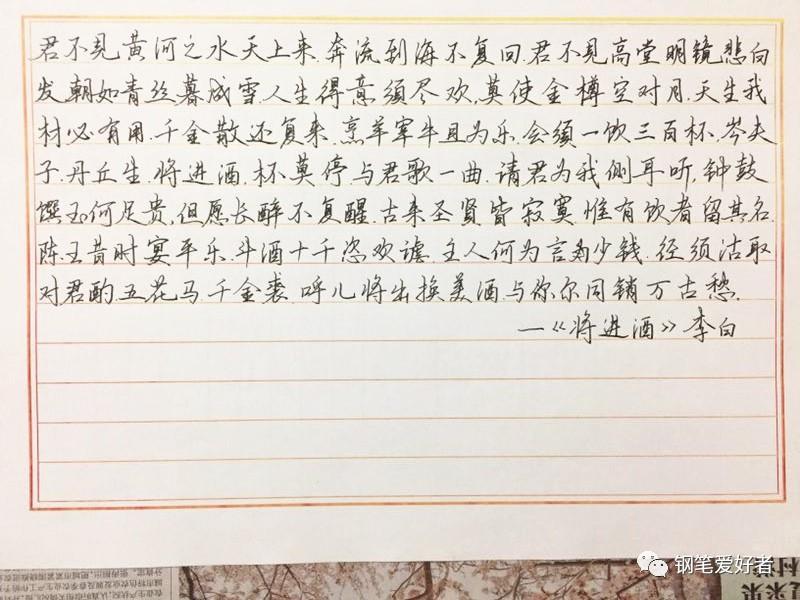 君不见黄河之水天上来.奔流到海不复回.君不见高堂明镜悲白
发,朝如青丝暮成雪.人生得意须尽欢,莫使金樽空对月.天生我
材必有用.千金散还复来.烹羊宰牛且为乐.会须一饮三百杯.岑夫
子.丹丘生.将进酒,杯莫停.与君歌一曲.请君为我侧耳听,钟鼓
馔玉何足贵,但愿长醉不复醒.古来圣贤皆寂寞惟有饮者留其名.
陈王昔时宴平乐.斗酒十千恣欢谑.主人何为言少钱.径须沽取
对君酌.五花马千金裘.呼儿将出换美酒.与你尔同销万古愁.
—《将进酒》李白
钢笔爱好者